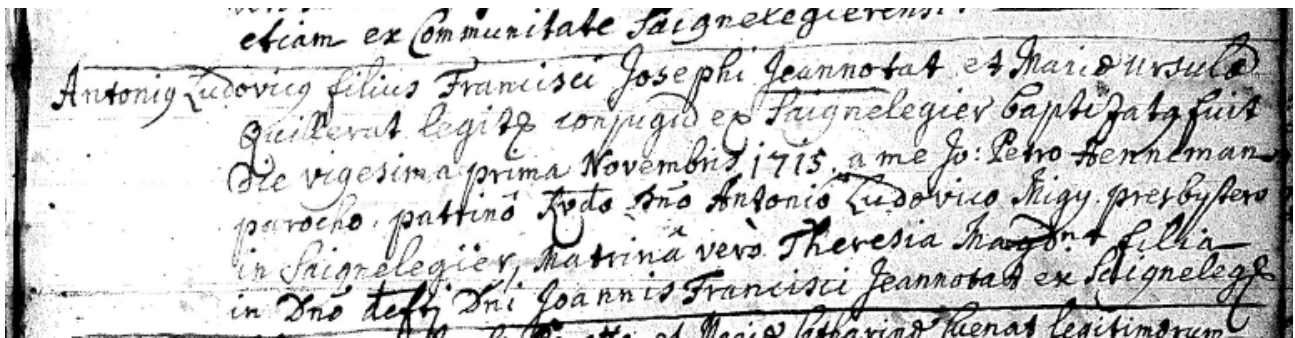 etiam ex Communitate Saignelegierensi.
Antonius Ludovicus filius Francisci Josephi Jeannotat et Mariæ Ursulæ
Quillerat legitm conjugu ex Saignelegier baptizatus fuit
Die vigesima prima Novembris 1715. a me Jo: Petro Henneman
parocho. patrinō Rvdo Dnō Antonio Ludovico Migy presbytero
in Saignelegier, Matrinā verò Theresia filia
in Dnō deftj Dnj Joannis Francisci Jeannotat ex Saigneleg
et Mariæ Catharinæ legitimorum